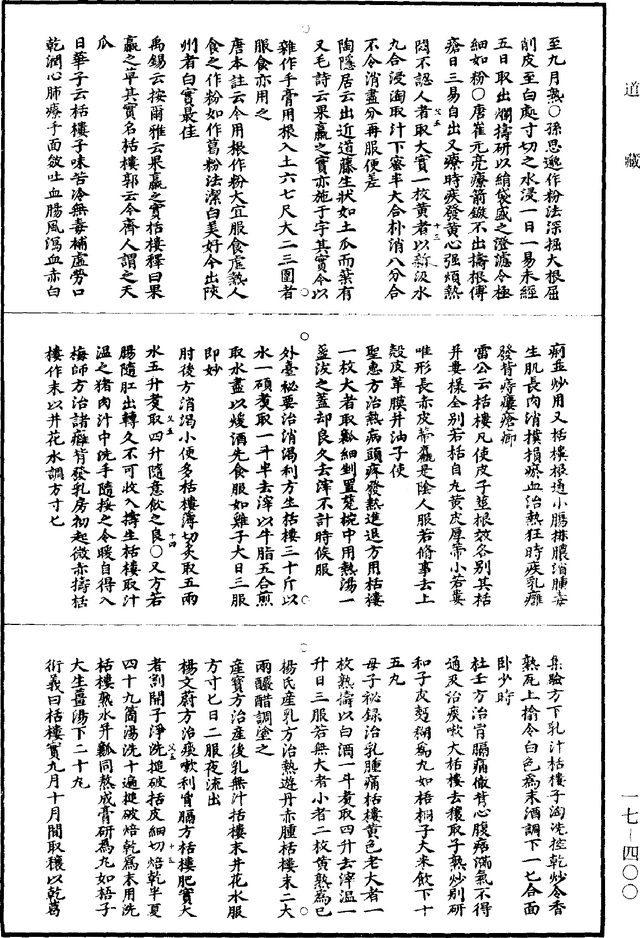 道藏
至九月熟○孫思邈作粉法深掘大根厚
削皮至白處寸切之水浸一日一易水經
五日取出爛擣研以絹袋盛之澄濾令極
細如粉○唐崔元亮療箭鏃不出擣根傅
瘡日三易自出又療時疾發黃心强煩熱
悶不認人者取大實一枚黃者以新汲水
九合浸淘取汁下蜜半大合朴消八分合
不令消盡分再服便差
陶隱居云出近道藤生狀如土瓜而葉有
叉毛詩云果臝之實亦施于宇其實今以
雜作手膏用根入土六七尺大二三圍者
服食亦用之
唐本註云今用根作粉大宜服食虛熱人
食之作粉如作葛粉法潔白美好今出陝
州者白實最佳
禹錫云按爾雅云果臝之實栝樓釋曰果
臝之草其實名栝樓郭云今齊人謂之天
瓜
日華子云栝樓子味苦冷無毒補虛勞口
乾潤心肺療手面皴吐血腸風瀉血赤白
痢並炒用又栝樓根通小腸排膿消腫毒
生肌長肉消撲損瘀血治熱狂時疾乳癰
發背痔瘻瘡癤
雷公云栝樓凡使皮子莖根效各別其栝
并蔞樣全別若栝自九黃皮厚蒂小若蔞
唯形長赤皮蒂麤是陰人服若修事去上
殼皮革膜并油子使
聖惠方治熱病頭疼發熱進退方用栝樓
一枚大者取瓤細剉置甆椀中用熱湯一
盞沃之蓋却良久去滓不計時候服
外臺秘要治消渴利方生栝樓三十斤以
水一碩煑取一斗半去滓以牛脂五合煎
取水盡以煖酒先食服如雞子大日三服
即妙
肘後方消渴小便多栝樓薄切炙取五兩
水五升煑取四升隨意飲之良○又方若
腸隨肛出轉久不可收入擣生栝樓取汁
温之猪肉汁中洗手隨按之令暖自得入
梅師方治諸癰背發乳房初起微赤擣栝
樓作末以井花水調方寸匕
集驗方下乳汁栝樓子淘洗控乾炒令香
熟瓦上搶令白色爲末酒調下一匕合面
卧少時
杜壬方治胷膈痛徹背心腹痞滿氣不得
通及治痰嗽大栝樓去穰取子熟炒別研
和子皮麪糊爲丸如梧桐子大米飲下十
五丸
母子祕録治乳腫痛栝樓黃色老大者一
枚熟擣以白酒一斗煑取四升去滓温一
升日三服若無大者小者二枚黃熟爲已
楊氏産乳方治熱遊丹赤腫栝樓末二大
兩釅醋調塗之
産寶方治産後乳無汁栝樓末井花水服
方寸匕日二服夜流出
楊文蔚方治痰嗽利胷膈方栝樓肥實大
者割開子淨洗搥破括皮細切焙乾半夏
四十九箇湯洗十遍搥破焙乾爲末用洗
栝樓熟水并瓤同熬成膏研爲丸如梧子
大生薑湯下二十丸
衍義曰栝樓實九月十月間取穰以乾葛
一七—四〇〇